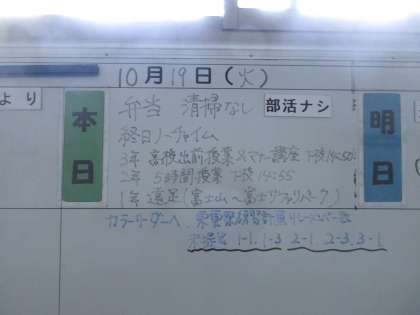 ナシ
10月19日(火)
より
本日
弁当 清掃なし 部活ナシ
明日
終日ノーチャイム
3年 高校出前授業&マナー講座 下校14:50
2年 5時間授業 下校14:55
1年 遠足(富士山へ富士サファリパーク)
カラーリーダーへ
未提出 1-1, 1-3, 2-1, 2-3, 3-1